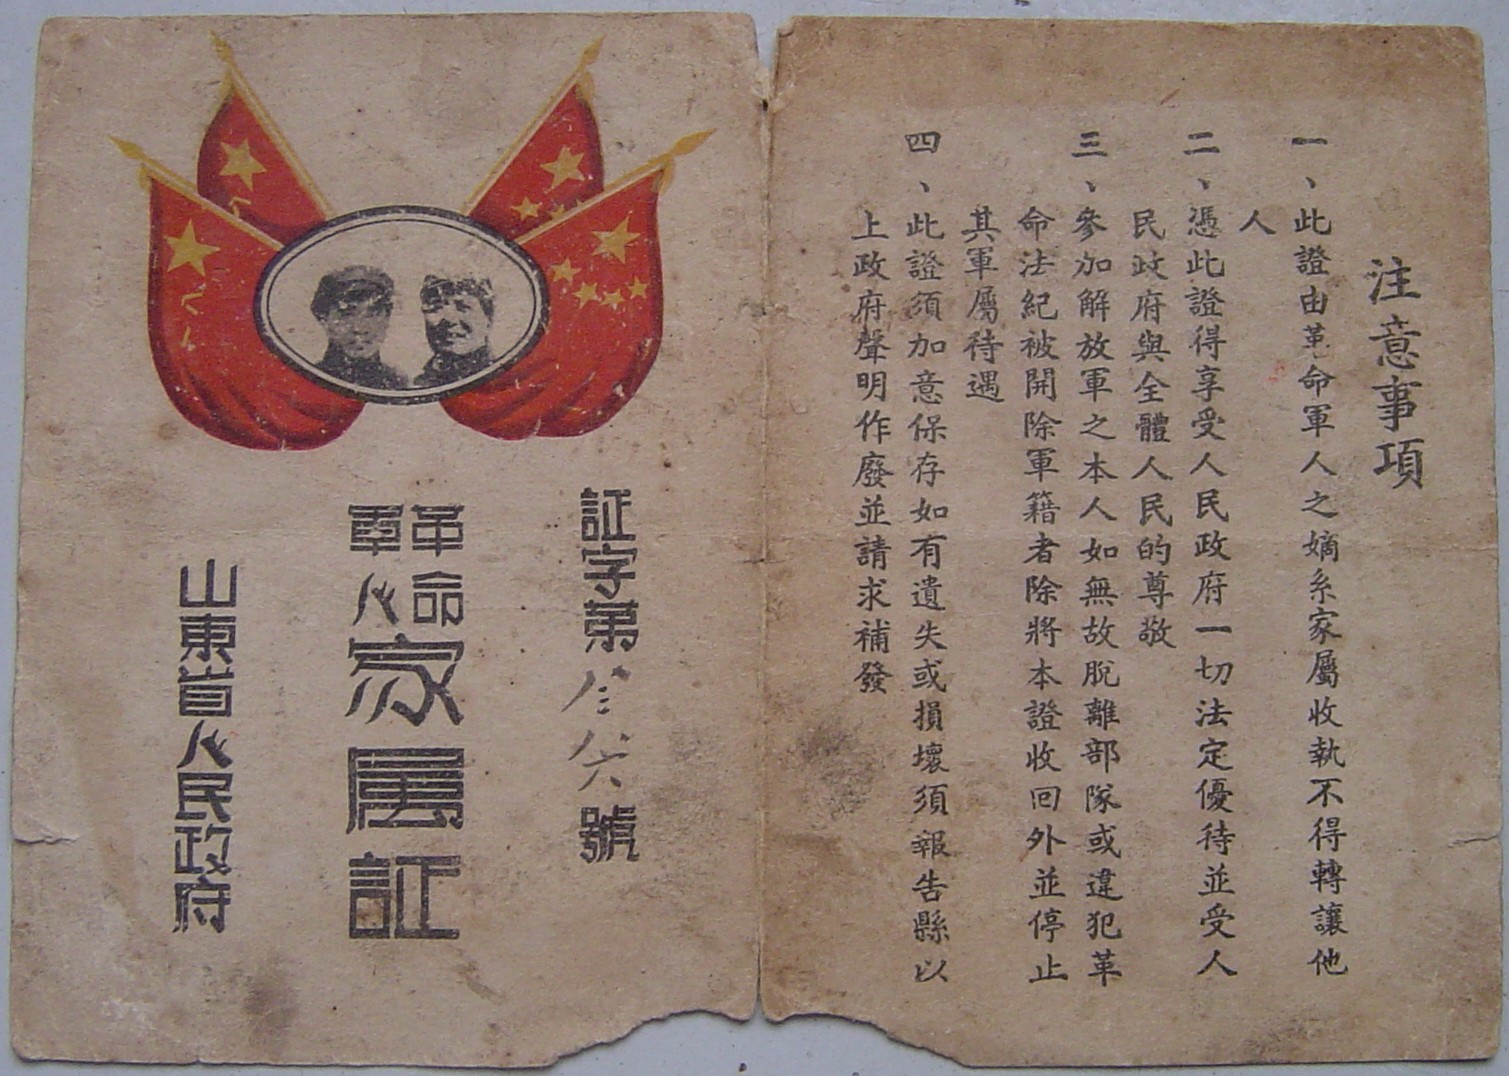 注意事項
一、此證由革命軍人之嫡系家屬收執不得轉讓他
人
二、憑此證得享受人民政府一切法定優待並受人
民政府與全體人民的尊敬
三、參加解放軍之本人如無故脫離部隊或違犯革
命法紀被開除軍籍者除將本證收回外並停止
其軍屬待遇
四、此證須加意保存如有遺失或損壞須報告縣以
上政府聲明作廢並請求補發
証字第 號
革命
軍人
家屬証
山東省人民政府